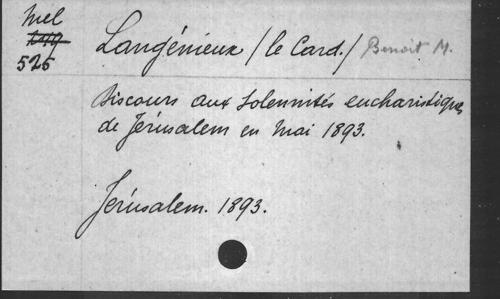 Mel
525
Langénieux / le Card. / Benoit M.
Discours aux Solennités eucharistiques
de Jérusalem en Mai 1893.
Jérusalem. 1893.